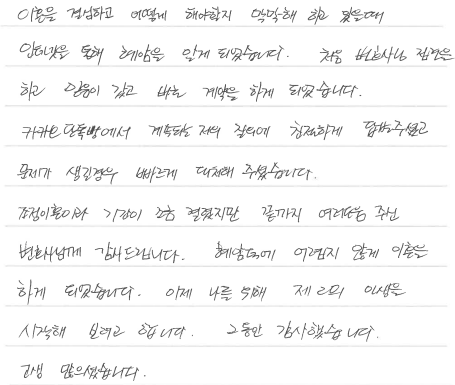 이혼을 결심하고 어떻게 해야할지 막막해 하고 있을때
인터넷을 통해 혜암을 알게 되었습니다. 처음 변호사님 접견을
하고 믿음이 갔고 바로 계약을 하게 되었습니다.
카카오 단톡방에서 계속되는 저의 질의에 친절하게 답해주셨고
문제가 생길경우 빠르게 대처해 주셨습니다.
조정이혼이라 기간이 조금 걸렸지만 끝까지 여러모로 주신
변호사님께 감사드립니다. 혜암덕에 어렵지 않게 이혼을
하게 되었습니다. 이제 나를 위해 제 2의 인생을
시작해 보려고 합니다. 그동안 감사했습니다.
고생 많으셨습니다.